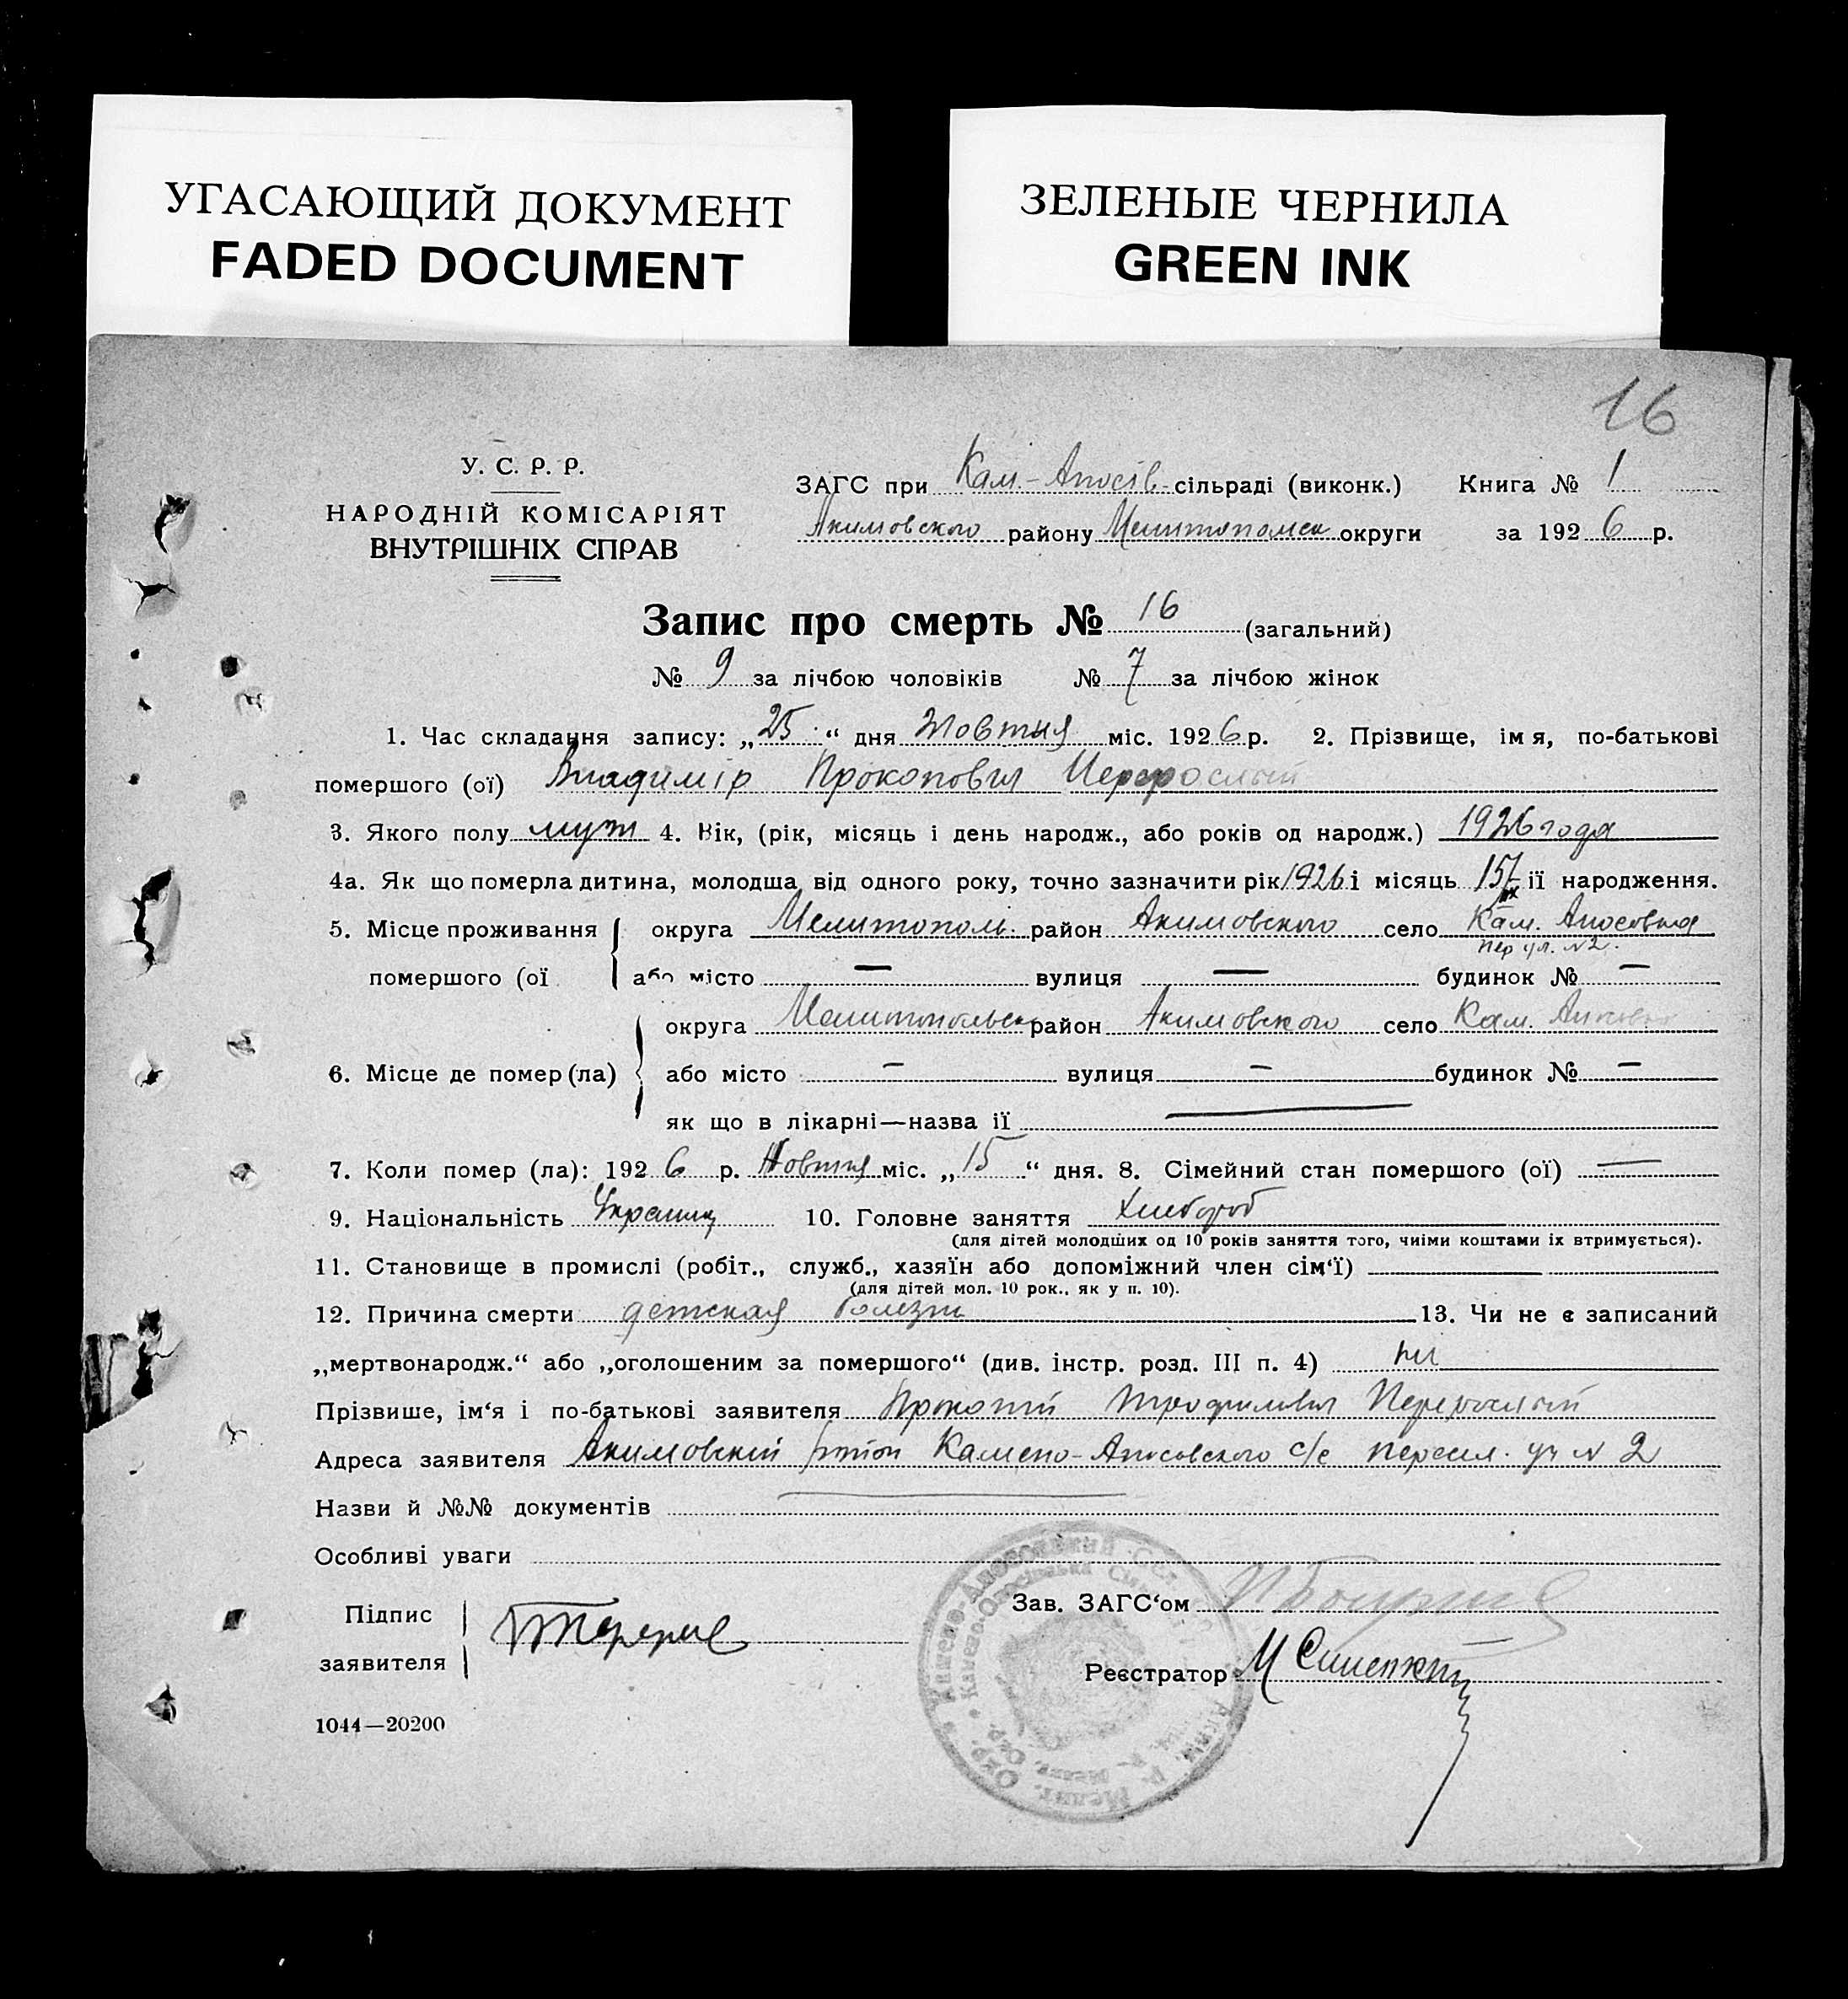 УГАСАЮЩИЙ ДОКУМЕНТ
FADED DOCUMENT
ЗЕЛЕНЫЕ ЧЕРНИЛА
GREEN INK
16
У. С. Р. Р.
НАРОДНІЙ КОМІСАРІЯТ
ВНУТРІШНІХ СПРАВ
ЗАГС при Кам.-Апосів- сільраді (виконк.) Книга № 1
Акимовского району Мелитопольск округи за 1926 р.
Запис про смерть № 16 (загальний)
№ 9 за лічбою чоловіків № 7 за лічбою жінок
1. Час складання запису: „25“ дня Жовтня міс. 1926 р. 2. Прізвище, імя, по-батькові
помершого (ої) Владимір Прокопович Перерослый
3. Якого полу муж 4. Вік, (рік, місяць і день народж., або років од народж.) 1926 года
4а. Як що померла дитина, молодша від одного року, точно зазначити рік 1926 і місяць 15/IX її народження.
5. Місце проживання округа Мелитополь район Акимовского село Кам. Апосовка
пер уч. №2.
помершого (ої або місто — вулиця — будинок № —
округа Мелитопольск район Акимовского село Кам.
6. Місце де помер (ла) або місто — вулиця — будинок № —
як що в лікарні—назва її —
7. Коли помер (ла): 1926 р. Жовтня міс. „15“ дня. 8. Сімейний стан помершого (ої) —
9. Національність Украинц 10. Головне заняття Хлебороб
(для дітей молодших од 10 років заняття того, чиїми коштами їх втримується).
11. Становище в промислі (робіт., служб., хазяїн або допоміжний член сім‘ї) —
(для дітей мол. 10 рок., як у п. 10).
12. Причина смерти детская болезнь 13. Чи не є записаний
„мертвонародж.“ або „оголошеним за помершого“ (див. інстр. розд. III п. 4) ні
Прізвише, ім‘я і по-батькові заявителя Прокопий Трофимович Перерослый
Адреса заявителя Акимовский район Камено-Апосовского с/с пересел. уч № 2
Назви й №№ документів —
Особливі уваги
Підпис
заявителя
Зав. ЗАГС‘ом
Реєстратор М
1044—20200